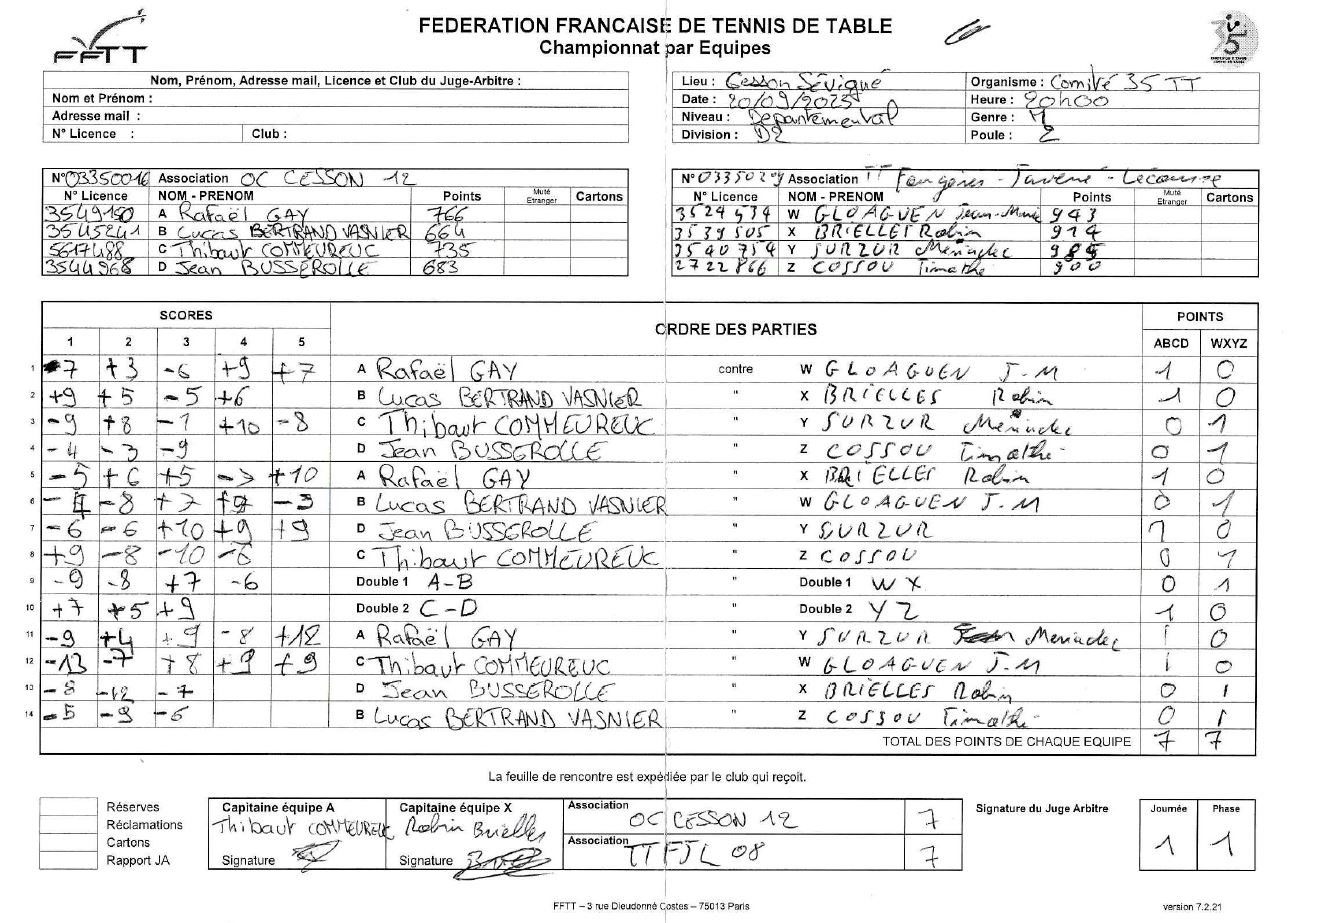 FEDERATION FRANCAISE DE TENNIS DE TABLE
Championnat par Equipes
FFTT
Nom, Prénom, Adresse mail, Licence et Club du Juge-Arbitre :
Nom et Prénom :
Adresse mail :
N° Licence : Club :
Lieu : Cesson Sévigné Organisme : Comité 35 TT
Date : 20/09/2025 Heure : 20h00
Niveau : Départemental Genre : M
Division : D2 Poule : 2
N° 03350016 Association OC CESSON 12
N° Licence NOM - PRENOM Points Muté Etranger Cartons
3549150 A Rafaël GAY 766
3545241 B Lucas BERTRAND VASNIER 664
5617488 C Thibaut COMMEUREUC 735
3544968 D Jean BUSSEROLLE 683
N° 03350209 Association TT Fougères - Javené - Lécousse
N° Licence NOM - PRENOM Points Muté Etranger Cartons
3524534 W GLOAGUEN Jean-Marie 943
3539505 X BRIELLES Robin 914
3540754 Y SURZUR Meriadec
2722866 Z COSSOU Timothé 900
SCORES ORDRE DES PARTIES POINTS
1 2 3 4 5 ABCD WXYZ
1 7 +3 -6 +9 +7 A Rafaël GAY contre W GLOAGUEN J.M 1 0
2 +9 +5 -5 +6 B Lucas BERTRAND VASNIER " X BRIELLES Robin 1 0
3 -9 +8 -7 +10 -8 C Thibaut COMMEUREUC " Y SURZUR Meriadec 0 1
4 -4 -3 -9 D Jean BUSSEROLLE " Z COSSOU Timothé 0 1
5 -5 +6 +5 -3 +10 A Rafaël GAY " X BRIELLES Robin 1 0
6 -8 +7 -3 B Lucas BERTRAND VASNIER " W GLOAGUEN J.M 0 1
7 -6 -6 +10 +9 +9 D Jean BUSSEROLLE " Y SURZUR 1 0
8 +9 -8 -10 -6 C Thibaut COMMEUREUC " Z COSSOU 0 1
9 -9 -8 +7 -6 Double 1 A-B " Double 1 WX 0 1
10 +7 +5 +9 Double 2 C-D " Double 2 YZ 1 0
11 -9 +4 +9 -8 +12 A Rafaël GAY " Y SURZUR Meriadec 1 0
12 -13 -7 +8 +9 +9 C Thibaut COMMEUREUC " W GLOAGUEN J.M 1 0
13 -8 -12 -7 D Jean BUSSEROLLE " X BRIELLES Robin 0 1
14 -5 -9 -6 B Lucas BERTRAND VASNIER " Z COSSOU Timothé 0 1
TOTAL DES POINTS DE CHAQUE EQUIPE 7 7
La feuille de rencontre est expédiée par le club qui reçoit.
Réserves
Réclamations
Cartons
Rapport JA
Capitaine équipe A
Thibaut COMMEUREUC
Signature
Capitaine équipe X
Robin Brielles
Signature
Association
OC CESSON 12 7
Association
TTFJL 08 7
Signature du Juge Arbitre
Journée Phase
1 1
FFTT – 3 rue Dieudonné Costes – 75013 Paris
version 7.2.21